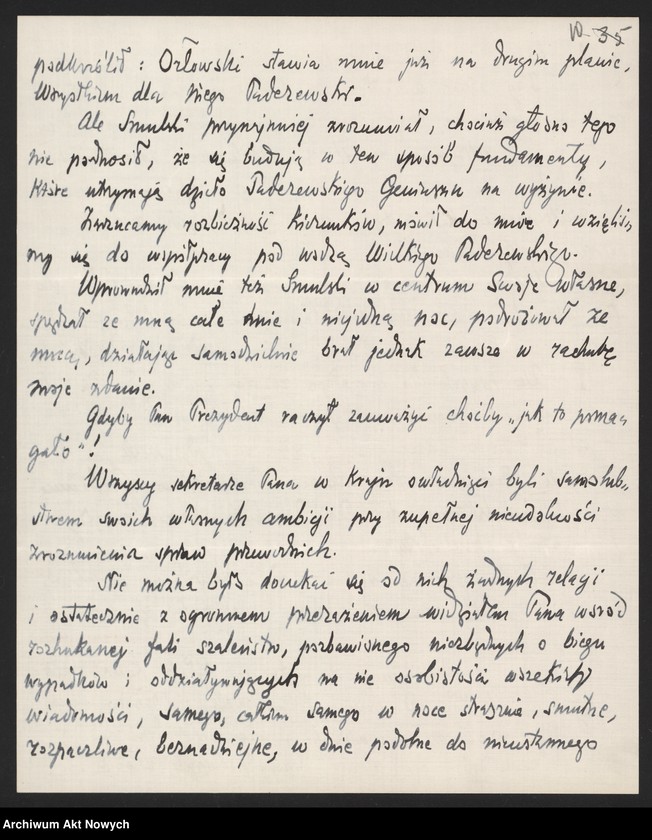 10 35
podkreślił: Orłowski stawia mnie już na drugim planie,
Wszystkim dla Niego Paderewski.
Ale Smulski przynajmniej zrozumiał, chociaż głośno tego
nie podnosił, że się budują w ten sposób fundamenty,
które utrzymają dzieło Paderewskiego Geniuszu na wyżynie.
Zarzucamy rozbieżność kierunków, mówił do mnie i wzięliś-
my się do współpracy pod wodzą Wielkiego Paderewskiego.
Wprowadził mnie też Smulski w centrum Swoje własne,
spędzał ze mną całe dnie i niejedną noc, podróżował ze
mną, działając samodzielnie brał jednak zawsze w rachubę
moje zdanie.
Gdyby Pan Prezydent raczył zauważyć choćby „jak to poma-
gało"!
Wszyscy sekretarze Pana w Kraju owładnięci byli samolub-
stwem swoich własnych ambicji przy zupełnej nieudolności
zrozumienia spraw przewodnich.
Nie można było doczekać się od nich żadnych relacji
i ostatecznie z ogromnem przerażeniem widziałem Pana wśród
rozhukanej fali szaleństw, pozbawionego niezbędnych o biegu
wypadków i oddziaływujących na nie osobistości wszelkich
wiadomości, samego, całkiem samego w noce straszne, smutne,
rozpaczliwe, beznadziejne, w dnie podobne do nieustannego
Archiwum Akt Nowych